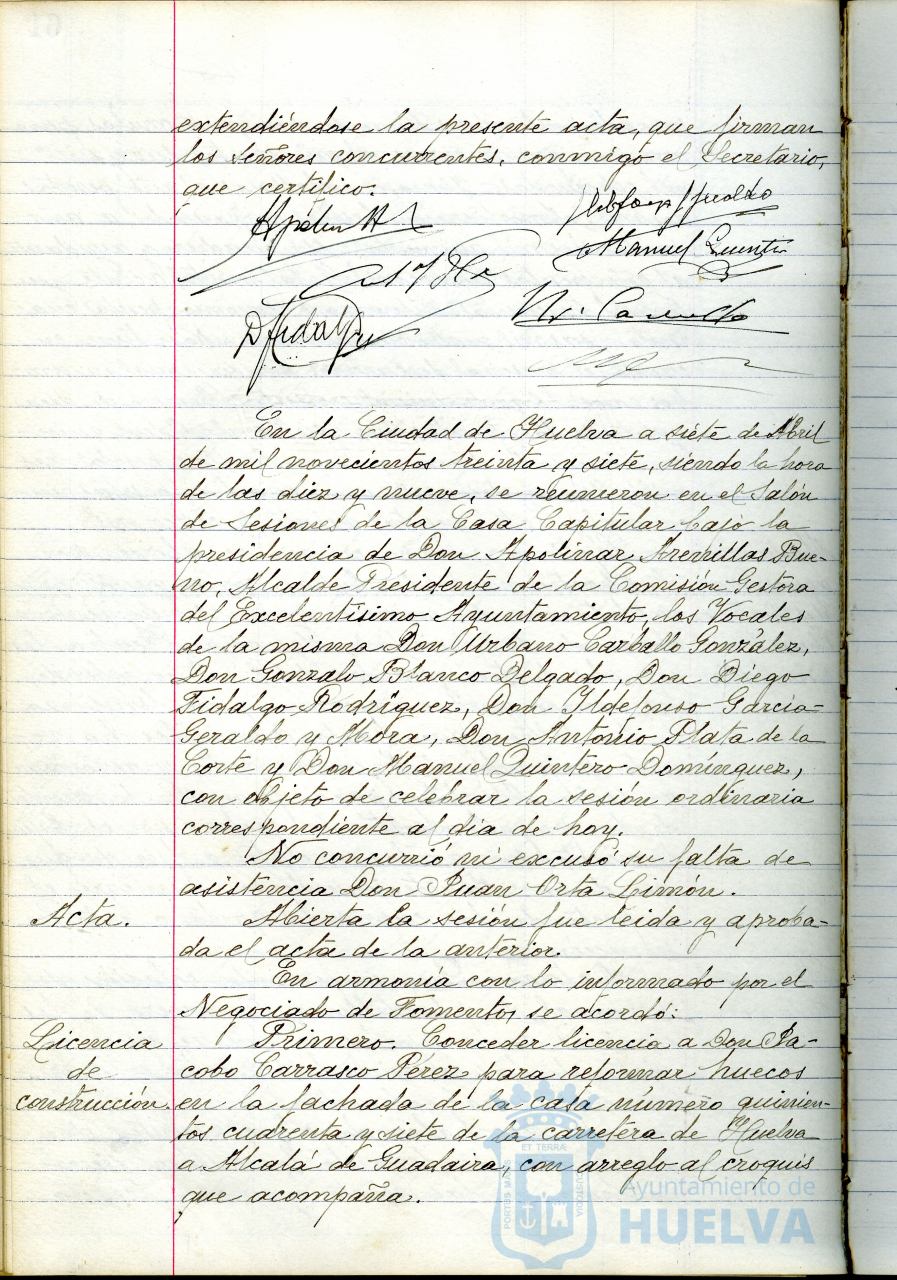 extendiéndose la presente acta, que firman
los Señores concurrentes, conmigo el Secretario,
que certifico.
Manuel Quintero
D Fidalgo
En la Ciudad de Huelva a siete de Abril
de mil novecientos treinta y siete, siendo la hora
de las diez y nueve, se reunieron en el Salón
de Sesiones de la Casa Capitular bajo la
presidencia de Don Apolinar Arenillas Bue-
no, Alcalde Presidente de la Comisión Gestora
del Excelentísimo Ayuntamiento, los Vocales
de la misma Don Urbano Carballo González,
Don Gonzalo Blanco Delgado, Don Diego
Fidalgo Rodríguez, Don Ildefonso García-
Geraldo y Mora, Don António Plata de la
Corte y Don Manuel Quintero Domínguez,
con objeto de celebrar la sesión ordinaria
correspondiente al día de hoy.
No concurrió ni excusó su falta de
asistencia Don Juan Orta Limón.
Acta.
Abierta la sesión fue leida y aproba-
da el acta de la anterior.
En armonía con lo informado por el
Negociado de Fomento, se acordó:
Licencia
de
construcción.
Primero. Conceder licencia a Don Ja-
cobo Carrasco Pérez para reformar huecos
en la fachada de la casa número quinien-
tos cuarenta y siete de la carretera de Huelva
a Alcalá de Guadaira, con arreglo al croquis
que acompaña.
PORTUS MARIS ET TERRÆ CUSTODIA
Ayuntamiento de
HUELVA